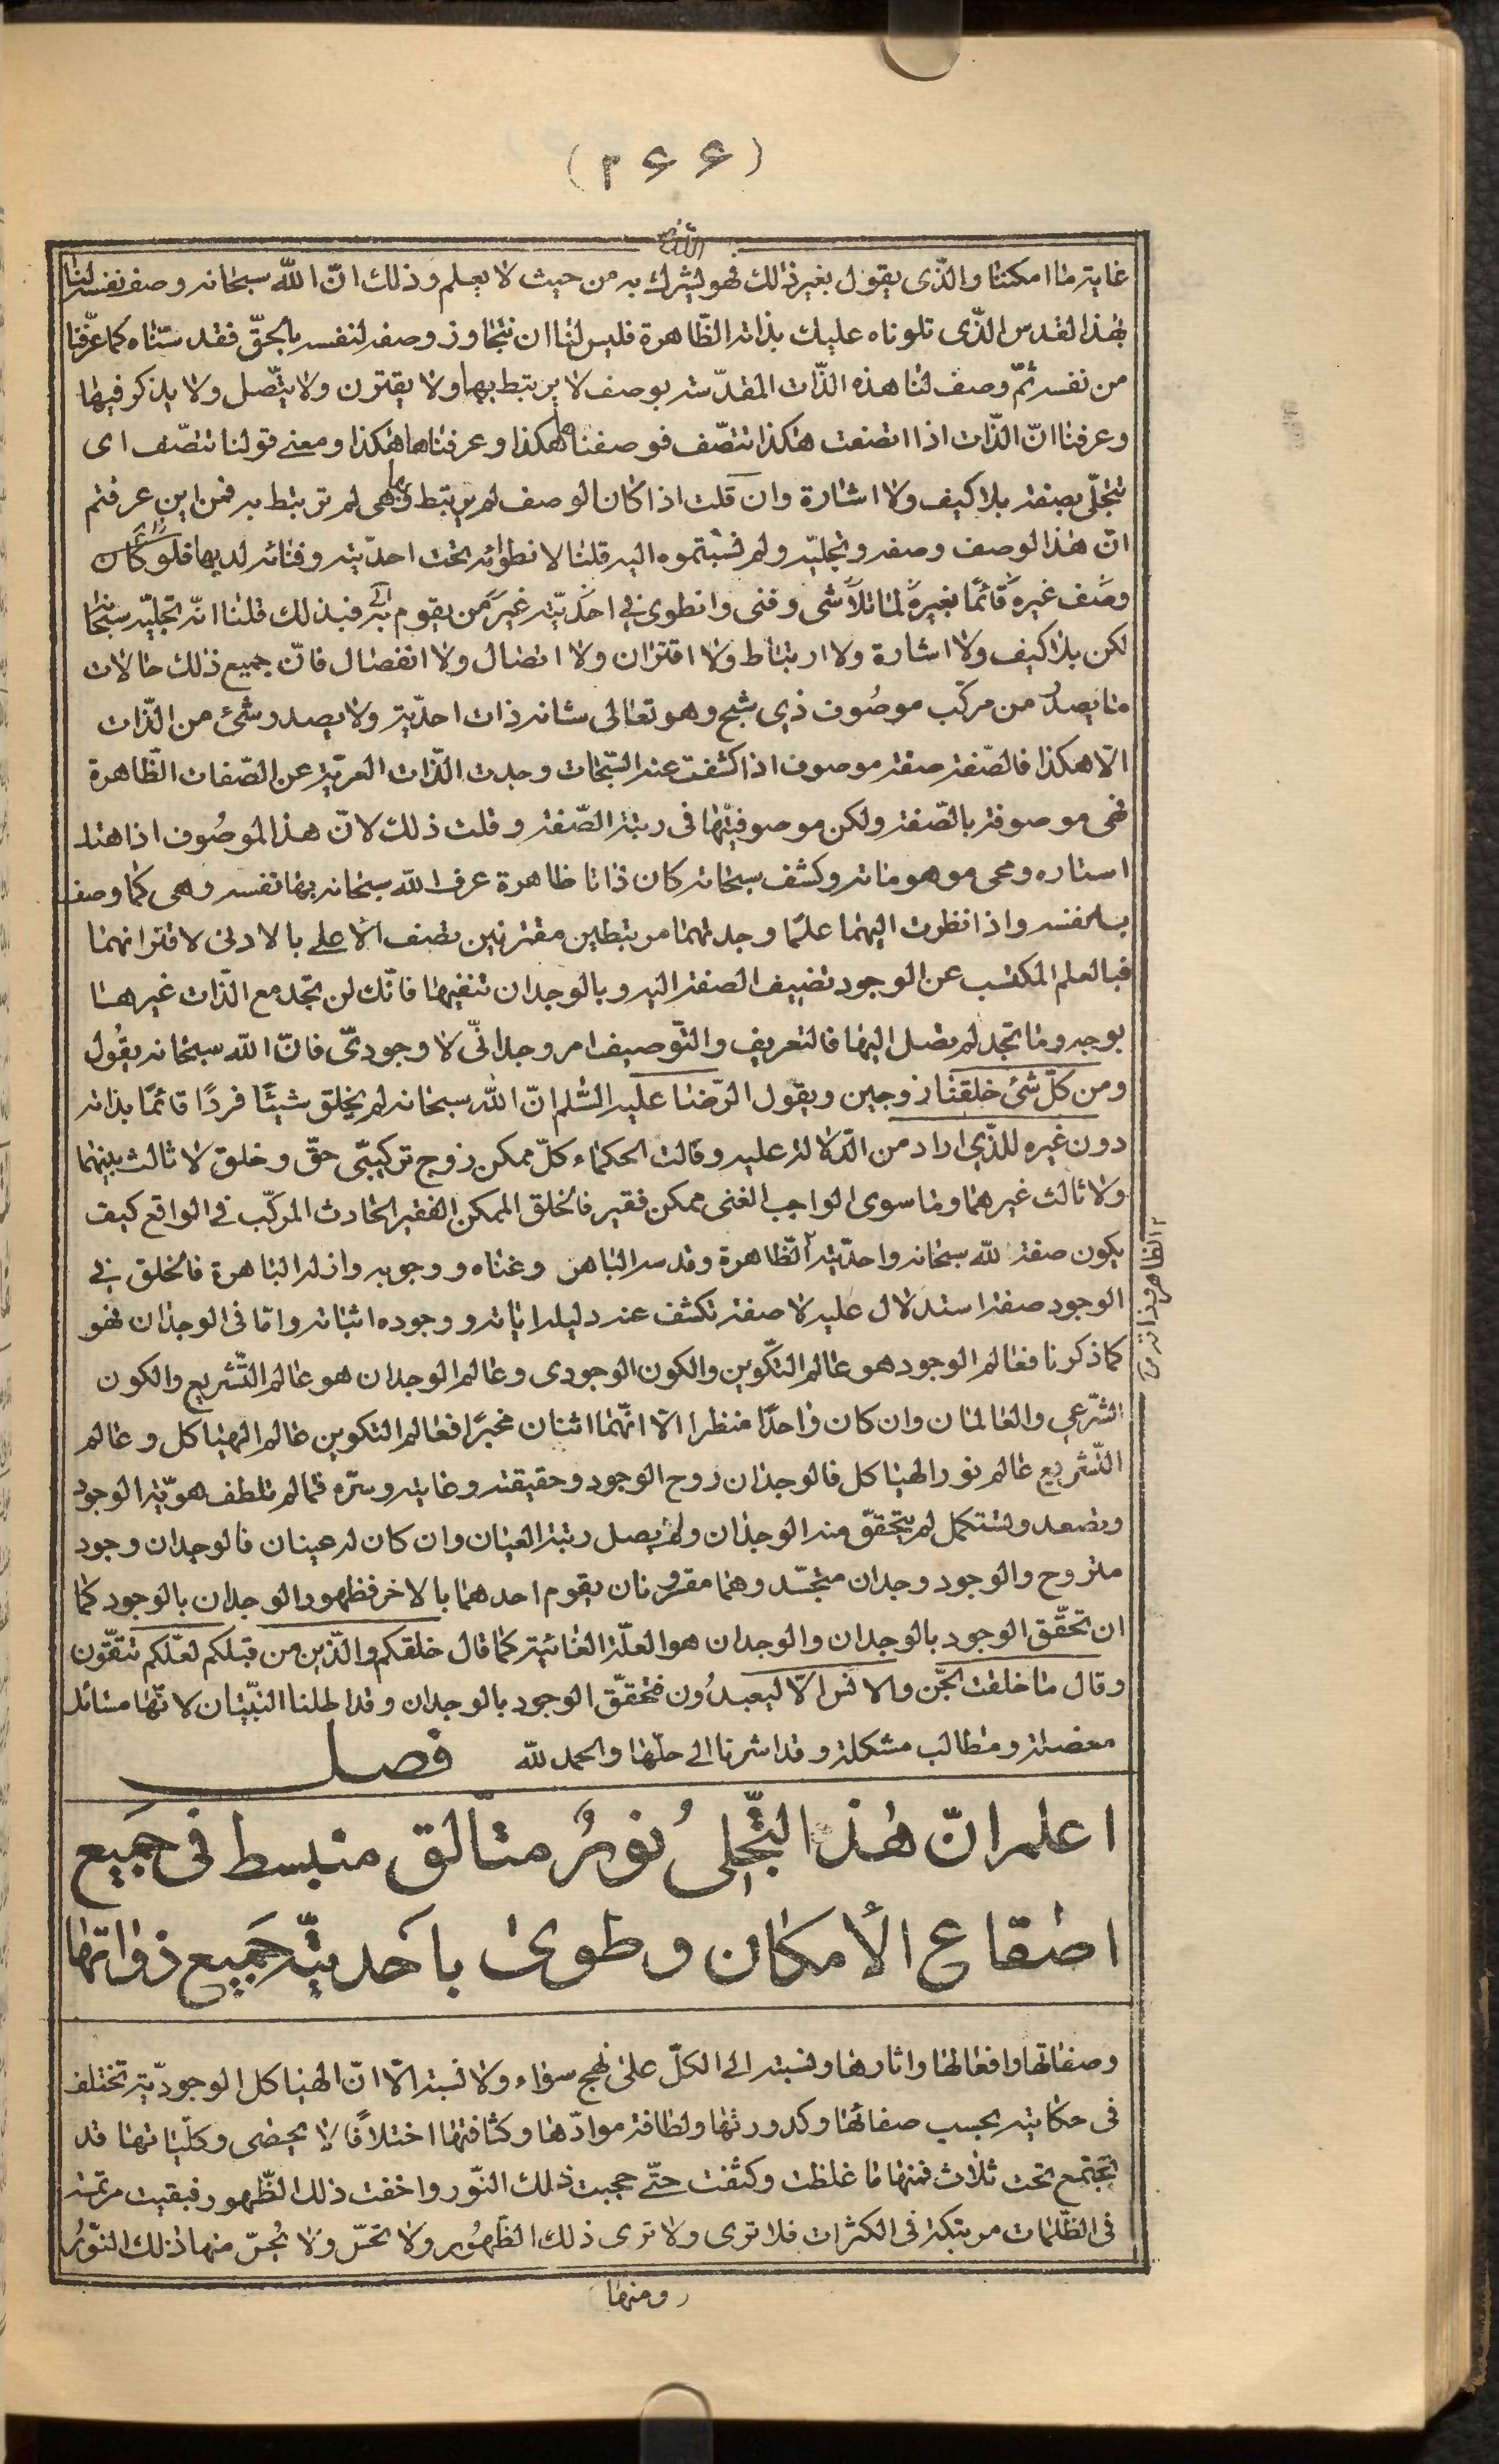 (٢۶۶)
غاية ما امكننا والّذی يقول بغير ذلك فهو ليشرك به من حيث لا يعلم وذلك انّ اللّه سبحانه وصف نفسه لنا
بهذا القدس الّذی تلوناه عليك بذاته الظّاهرة فليس لنا ان نتجاوز وصفه لنفسه بالحقّ فقد ستّناه كما عرّفنا
من نفسه ثمّ وصف لنا هذه الذّات المقدّسة بوصف لا يرتبط بها ولا يقترن ولا يتّصل ولا يذكر فيها
وعرفنا انّ الذّات اذا اتصفت هكذا تتصّف فوصفناها هكذا وعرفناها هكذا ومعنی قولنا تتصّف ای
تتجلّی بصفة بلا كيف ولا اشارة وان قلت اذا كان الوصف لم يرتبط بها وهی لم ترتبط به فمن اين عرفتم
انّ هذا الوصف وصفه وتجلّيه ولم نسبتموه اليه قلنا لانطوائه تحت احدّيته وفنائه لديها فلو كان
وصف غيره قائمًا بغيره لما تلاشی وفنی وانطوی فی احديّته غير من يقوم به فبذلك قلنا انّه تجلّيه سبحانه
لكن بلا كيف ولا اشارة ولا ارتباط ولا اقتران ولا اتصال ولا انفصال فانّ جميع ذلك حالات
ما يصدر من مركّب موصُوف ذی شبح وهو تعالی شانه ذات احدّية ولا يصدر شئ من الذّات
الّا هكذا فالصّفة صفة موصوف اذا كشفت عنه السّبحات وجدت الذّات العريّة عن الصّفات الظّاهرة
فهی موصوفة بالصّفة ولكن موصوفيّتها فی رتبة الصّفة وقلت ذلك لانّ هذا الموصُوف اذا هتك
استاره ومحی موهوماته وكشف سبحاته كان ذاتا ظاهرة عرف اللّه سبحانه بها نفسه وهی كما وصف
به نفسه واذا نظرت اليهما علمًا وجدتهما مرتبطين مقترنين تصف الأعلی بالادنی لاقترانهما
فبالعلم المكتسب عن الوجود تضيف الصفة اليه وبالوجدان تنفيها فانّك لن تجد مع الذّات غيرها
بوجه وما تجد لم يصل اليها فالتعريف والتّوصيف امر وجدانّی لا وجودیّ فانّ اللّه سبحانه يقُول
ومن كلّ شئ خلقنا زوجين ويقول الرّضا عليه السّلم انّ اللّه سبحانه لم يخلق شيئًا فردًا قائمًا بذاته
دون غيره للّذی اراد من الدّلالة عليه وقالت الحكماء كلّ ممكن زوج تركيبّی حقّ وخلق لا ثالث بينهما
ولا ثالث غيرهما وما سوی الواجب الغنی ممكن فقير فالخلق الممكن الفقير الحادث المركّب فی الواقع كيف
يكون صفة للّه سبحانه واحدّيته الظّاهرة وقدسه الباهر وغناه ووجوبه وازله الباهرة فالخلق فی
الوجود صفة استدلال عليه لا صفة تكشف عنه دليله اياته ووجوده اثباته وامّا فی الوجدان فهو
كما ذكرنا فعالم الوجود هو عالم التكّوين والكون الوجودی وعالم الوجدان هو عالم التّشريع والكون
الشّرعی والعالمان وان كان واحدًا منظرا الّا انّهما اثنان مخبرًا فعالم التكوين عالم الهياكل وعالم
التّشريع عالم نور الهياكل فالوجدان روح الوجود وحقيقته وغايته وسرّه فما لم تلطف هوّية الوجود
وتصعد وتستكمل لم يتحقّق منه الوجدان ولم يصل رتبة العيان وان كان له عينان فالوجدان وجود
متروح والوجود وجدان متجسّد وهما مقرونان يقوم احدهما بالاخر فظهور الوجدان بالوجود كما
ان تحقّق الوجود بالوجدان والوجدان هو العلّة الغائية كما قال خلقكم والّذين من قبلكم لعلّكم تتقّون
وقال ما خلقت الجّن والانس الّا ليعبدُون فتحقّق الوجود بالوجدان وقد اطلنا التبّيان لانّها مسائل
معضلة ومطالب مشكلة وقد اشرنا الی حلّها والحمد للّه فصل
اعلم انّ هٰذا التّجلی نورٌ متألق منبسط فی جميع
اصقاع الأمكان وطوی بأحديّته جميع ذواتها
وصفاتها وافعالها واثارها ونسبته الی الكلّ علی نهج سواء ولا نسبة الّا انّ الهياكل الوجودّية تختلف
فی حكايته بحسب صفائها وكدورتها ولطافة موادّها وكثافتها اختلافًا لا يحصی وكلّياتها قد
تجتمع تحت ثلاث فمنها ما غلظت وكثفت حتّی حجبت ذلك النّور واخفت ذلك الظّهور فبقيت مرتمسة
فی الظّلمات مرتبكة فی الكثرات فلا تری ولا تری ذلك الظّهُور ولا تحسّ ولا يُحسّ منها ذلك النّورُ
ومنها